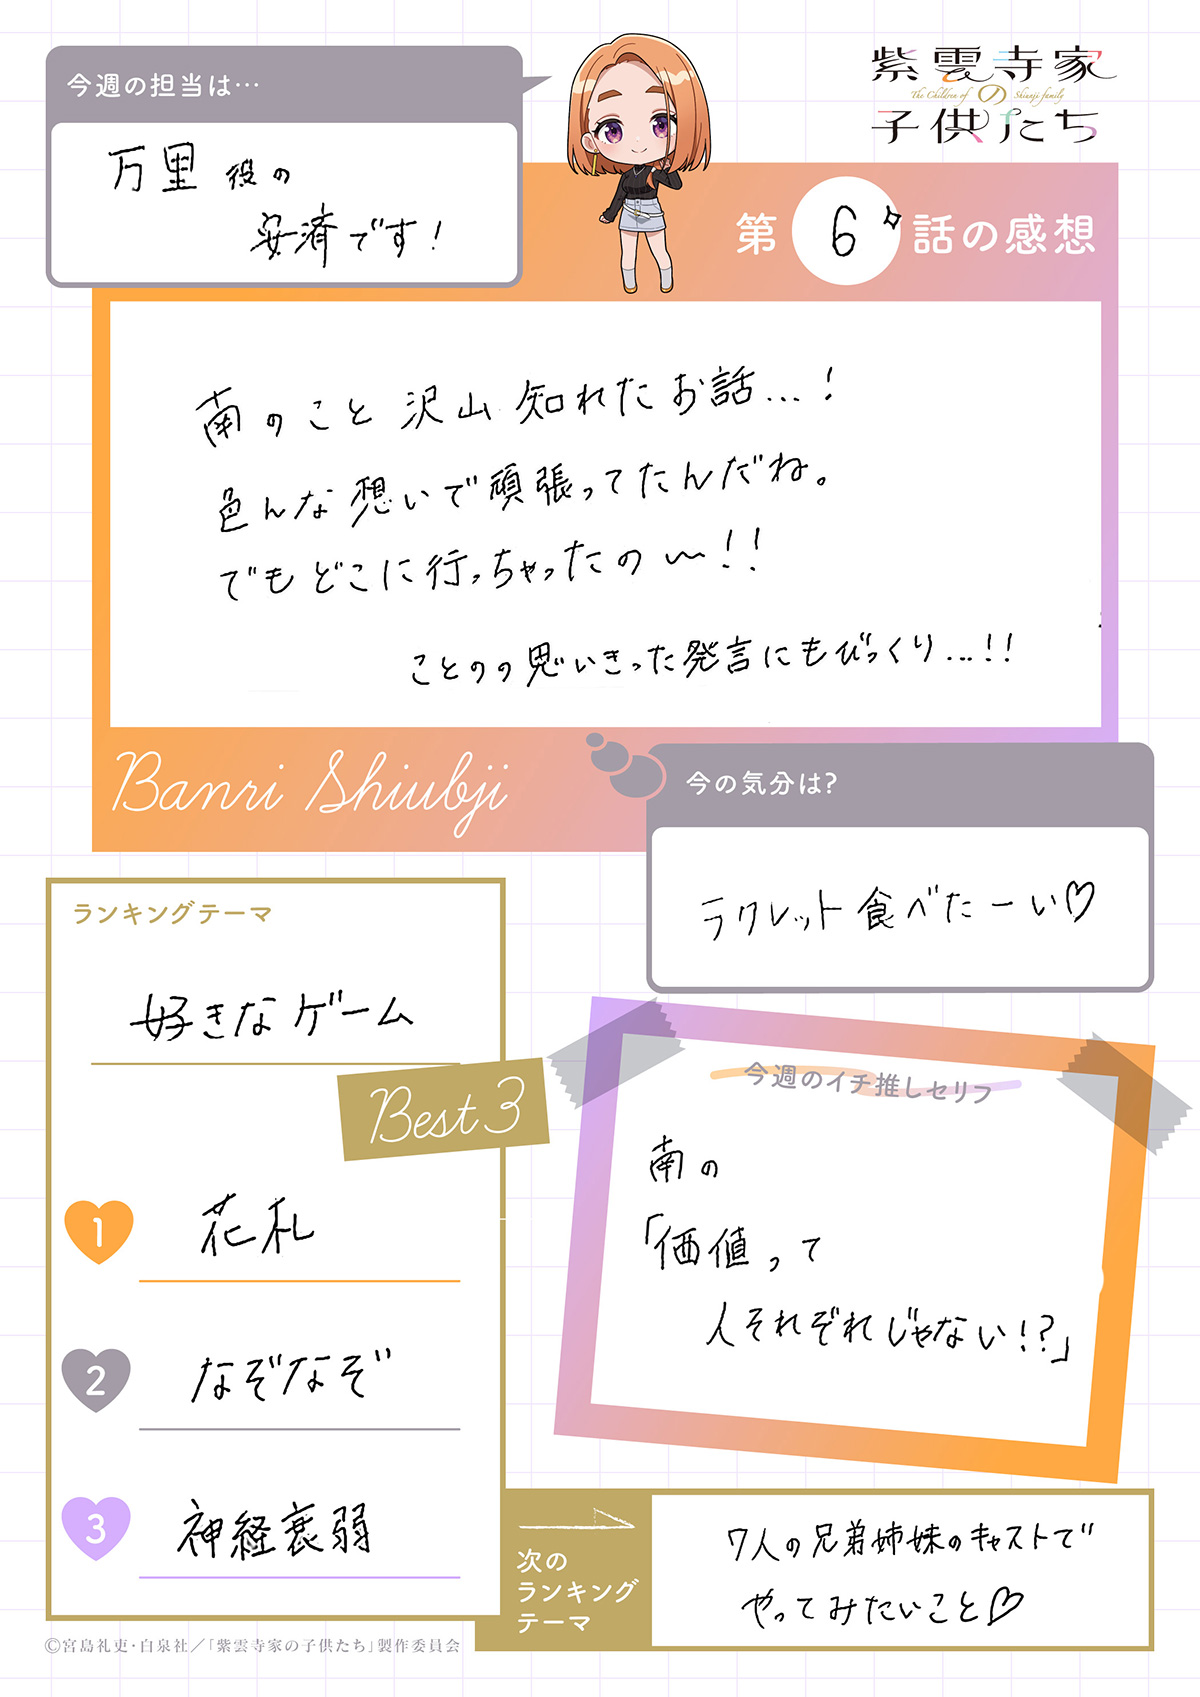 今週の担当は…
万里役の
安済です!
紫雲寺家
の
The Children of Shiunji family
子供たち
第6話の感想
南のこと沢山知れたお話…!
色んな想いで頑張ってたんだね。
でもどこに行っちゃったの〜!!
ことのの思いきった発言にもびっくり…!!
Banri Shiubji
今の気分は?
ラクレット食べたーい♡
ランキングテーマ
好きなゲーム
Best 3
1 花札
2 なぞなぞ
3 神経衰弱
今週のイチ推しセリフ
南の
「価値って
人それぞれじゃない!?」
次の
ランキング
テーマ
7人の兄弟姉妹のキャストで
やってみたいこと♡
©宮島礼吏・白泉社/「紫雲寺家の子供たち」製作委員会